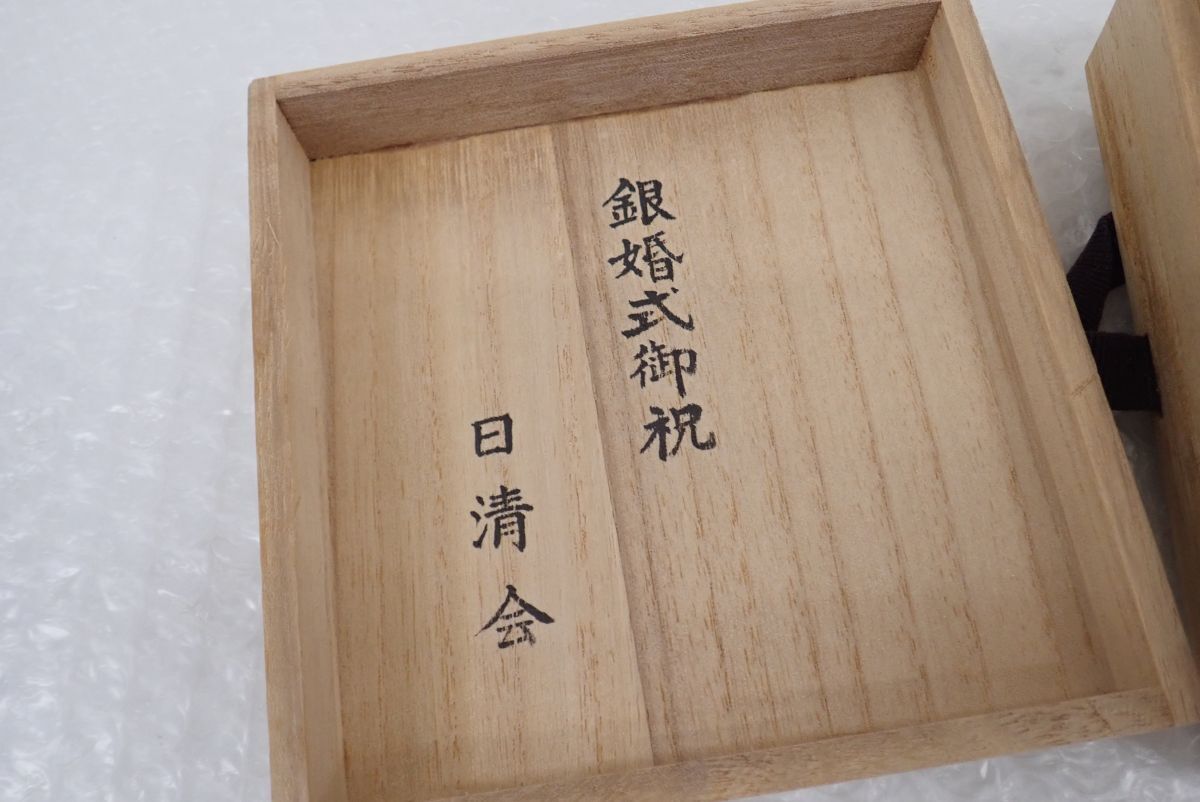 銀婚式御祝
日清会